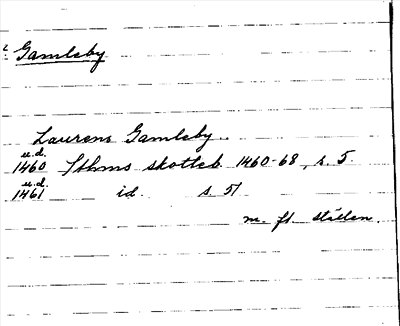 Gamleby
Laurens Gamleby
u.d.
1460 Sthms skotteb. 1460-68, s. 5.
u.d.
1461 id. s. 51
m. fl. ställen.